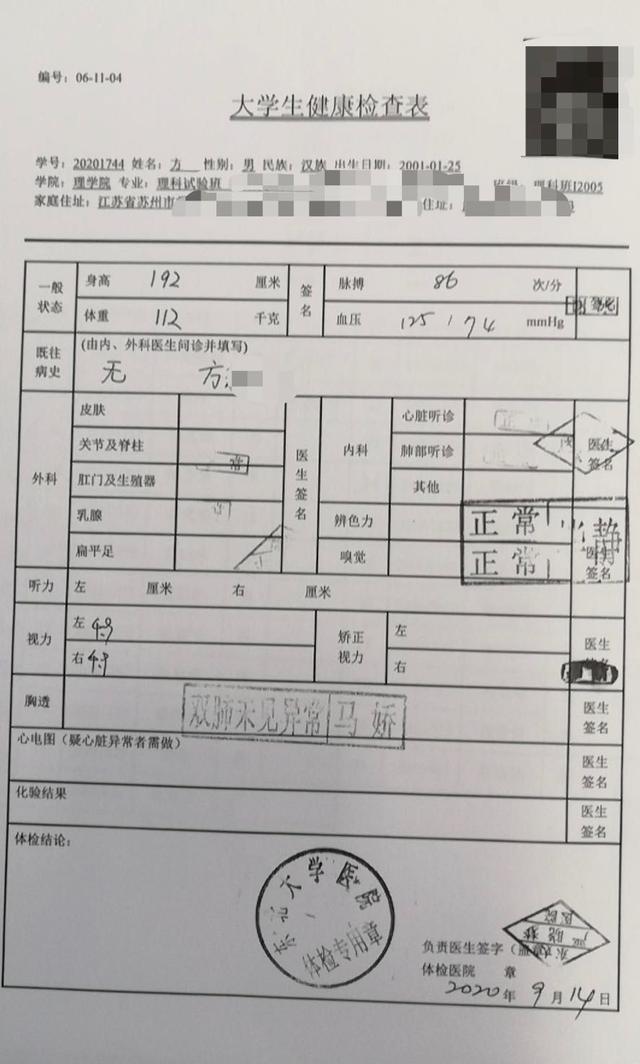 编号：06-11-04
大学生健康检查表
学号：20201744 姓名：方 性别：男 民族：汉族 出生日期：2001-01-25
学院：理学院 专业：理科试验班 理科班I2005
家庭住址：江苏省苏州市 住址：
一般状态 身高 192 厘米 签名 脉搏 86 次/分
体重 112 千克 血压 125 / 74 mmHg
既往病史 (由内、外科医生问诊并填写)
无 方
外科 皮肤 医生签名 内科 心脏听诊 医生签名
关节及脊柱 肺部听诊
肛门及生殖器 其他
乳腺 辨色力 正常
扁平足 嗅觉 正常 医生签名
听力 左 厘米 右 厘米
视力 左 4.9 矫正视力 左 医生签名
右 4.9 右
胸透 双肺未见异常 马娇 医生签名
心电图（疑心脏异常者需做） 医生签名
化验结果 医生签名
体检结论：
东北大学医院
体检专用章
负责医生签字
体检医院 章
2020年 9月 14日